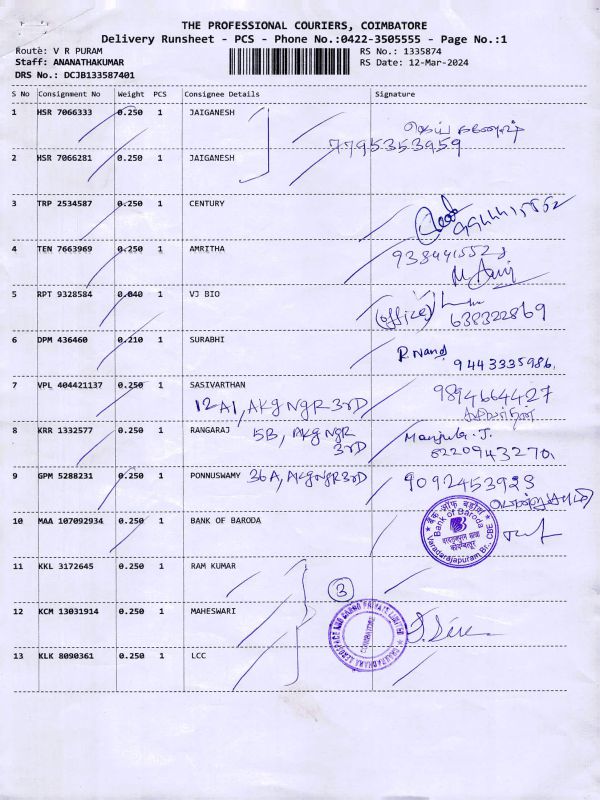 THE PROFESSIONAL COURIERS, COIMBATORE
Delivery Runsheet - PCS - Phone No.:0422-3505555 - Page No.:1
Route: V R PURAM
RS No.: 1335874
Staff: ANANATHAKUMAR
RS Date: 12-Mar-2024
DRS No.: DCJB133587401
S No Consignment No Weight PCS Consignee Details Signature
1 HSR 7066333 0.250 1 JAIGANESH
7795353959
2 HSR 7066281 0.250 1 JAIGANESH
3 TRP 2534587 0.250 1 CENTURY
4 TEN 7663969 0.250 1 AMRITHA
5 RPT 9328584 0.040 1 VJ BIO (office)
638322869
6 DPM 436460 0.210 1 SURABHI R. Nand
9443335986.
7 VPL 404421137 0.250 1 SASIVARTHAN 9894664427
12A1, AKG NGR 3RD
8 KRR 1332577 0.250 1 RANGARAJ 5B, AKG NGR 3RD Manjula. J.
9 GPM 5288231 0.250 1 PONNUSWAMY 36A, AKG NGR 3RD 9092453923
10 MAA 107092934 0.250 1 BANK OF BARODA
बैंक ऑफ़ बड़ौदा
Bank of Baroda
Varadarajapuram Br., CBE
11 KKL 3172645 0.250 1 RAM KUMAR
3
12 KCM 13031914 0.250 1 MAHESWARI
COIMBATORE
13 KLK 8090361 0.250 1 LCC